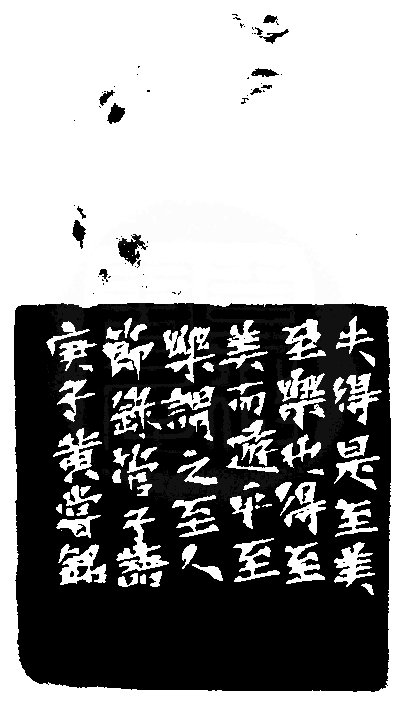 夫得是至美
至樂也得至
美而遊乎至
樂謂之至人
節錄管子語
庚子黃嘗銘